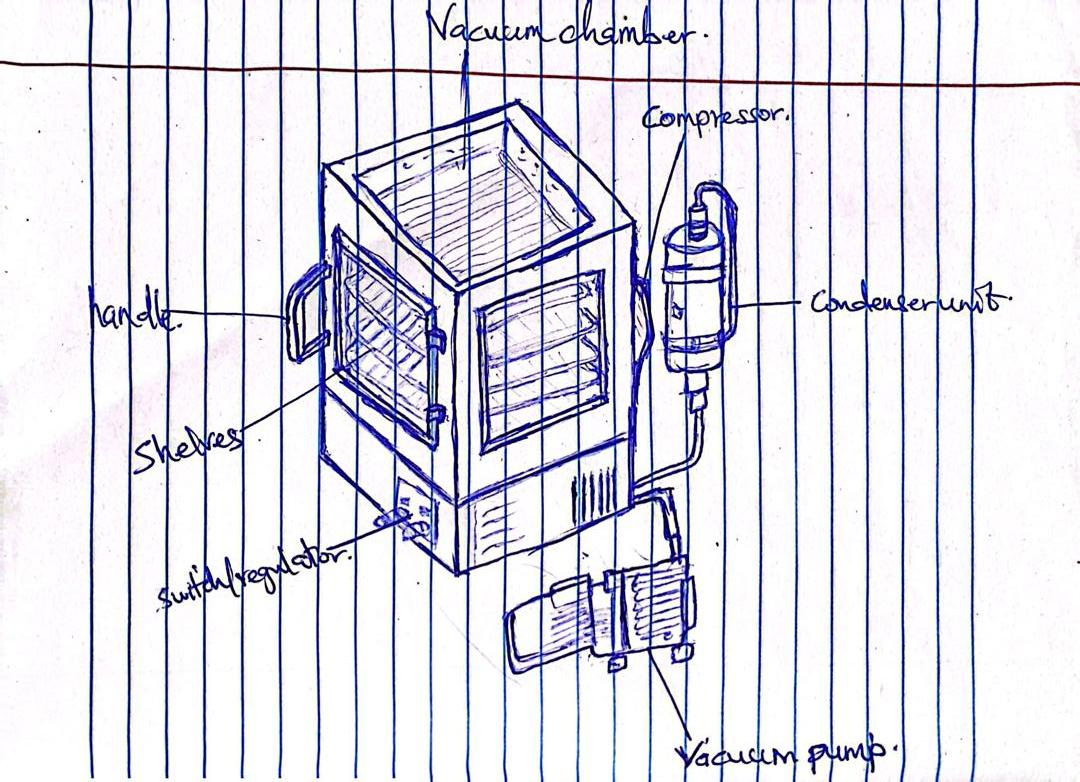 Vacuum chamber.
Compressor.
handle.
Condenser unit.
Shelves
switch/regulator.
Vacuum pump.